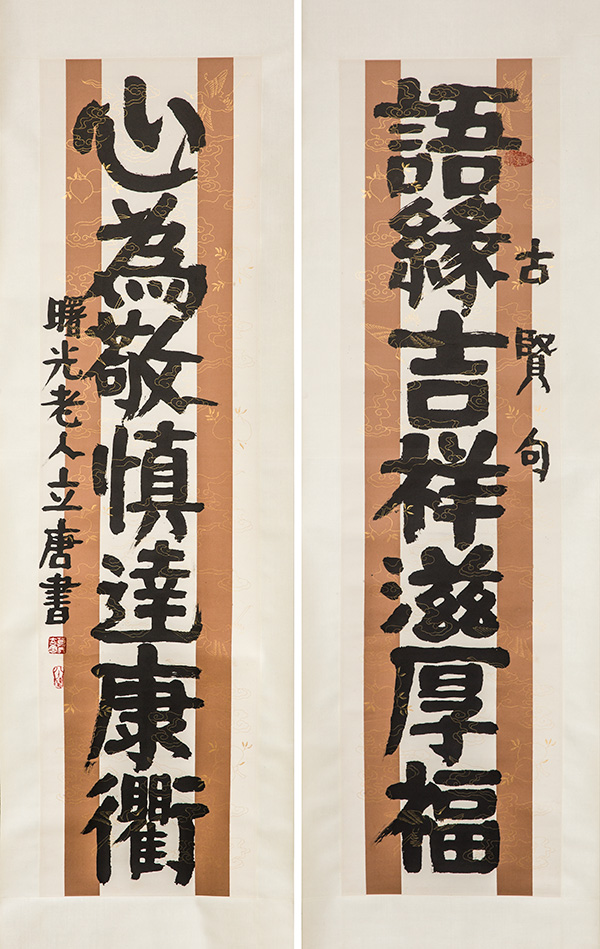 語緣吉祥滋厚福
古賢句
心為敬慎達康衢
曙光老人立唐書